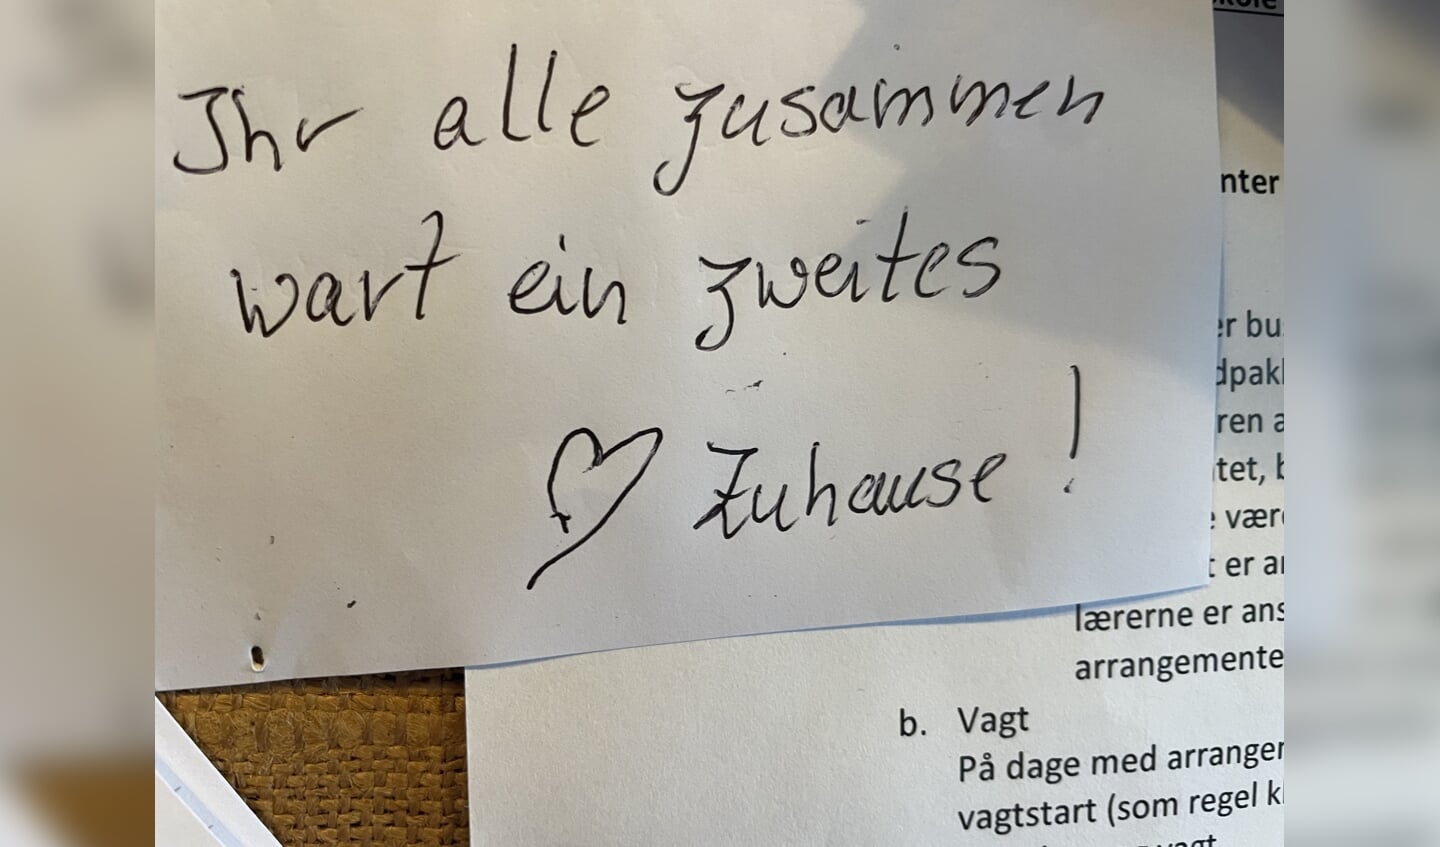 Ihr alle zusammen
wart ein zweites
Zuhause!
nter
er bu
ren a
tet, b
e være
t er
lærerne er
arrangemente
b. Vagt
På dage med arranger
vagtstart (som regel